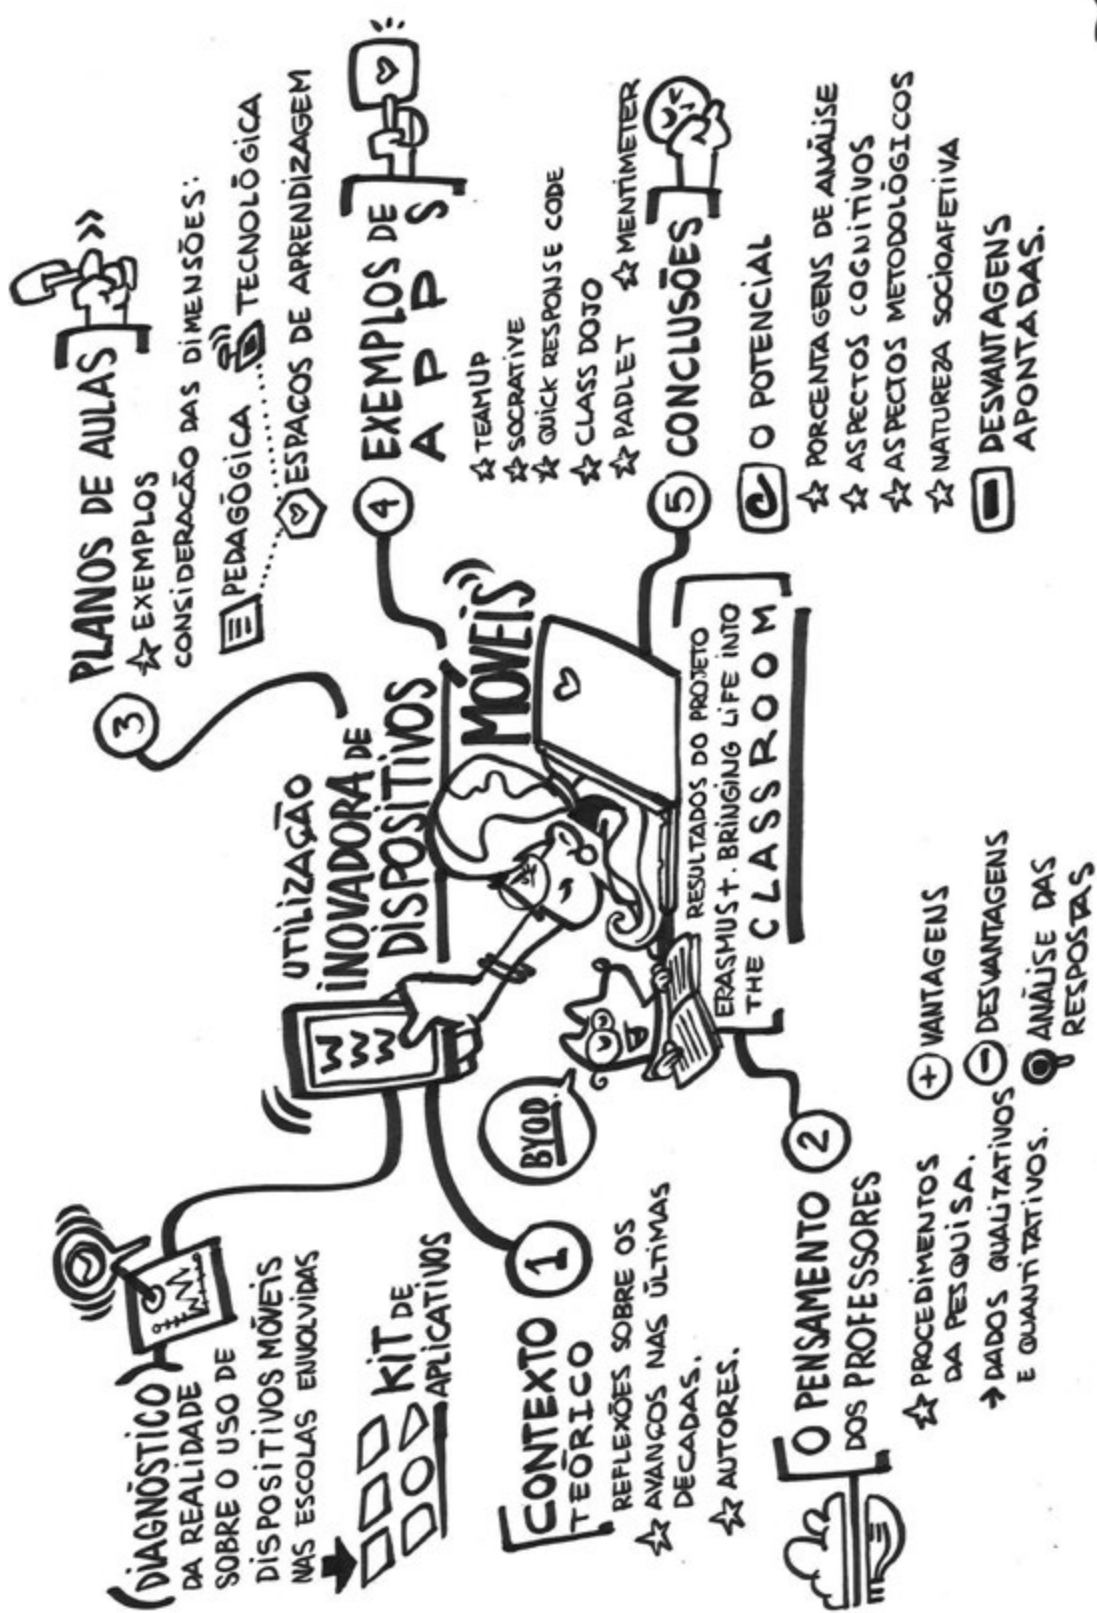 UTILIZAÇÃO
INOVADORA DE
DISPOSITIVOS
MOVEIS
WWW
WW
BYOD
RESULTADOS DO PROJETO
ERASMUS+. BRINGING LIFE INTO
THE CLASSROOM
(DIAGNÓSTICO)
DA REALIDADE
SOBRE O USO DE
DISPOSITIVOS MÓVEIS
NAS ESCOLAS ENVOLVIDAS
KIT DE
APLICATIVOS
1
CONTEXTO
TEÓRICO
REFLEXÕES SOBRE OS
AVANÇOS NAS ÚLTIMAS
DECADAS.
AUTORES.
2
O PENSAMENTO
DOS PROFESSORES
PROCEDIMENTOS
DA PESQUISA.
→ DADOS QUALITATIVOS
E QUANTITATIVOS.
+ VANTAGENS
- DESVANTAGENS
ANÁLISE DAS
RESPOSTAS
3
PLANOS DE AULAS
EXEMPLOS
CONSIDERAÇÃO DAS DIMENSÕES:
PEDAGÓGICA TECNOLÓGICA
ESPAÇOS DE APRENDIZAGEM
4
EXEMPLOS DE
APPPS
TEAMUP
SOCRATIVE
QUICK RESPONSE CODE
CLASS DOJO
PADLET MENTIMETER
5
CONCLUSÕES
O POTENCIAL
PORCENTAGENS DE ANÁLISE
ASPECTOS COGNITIVOS
ASPECTOS METODOLÓGICOS
NATUREZA SOCIOAFETIVA
DESVANTAGENS
APONTADAS.